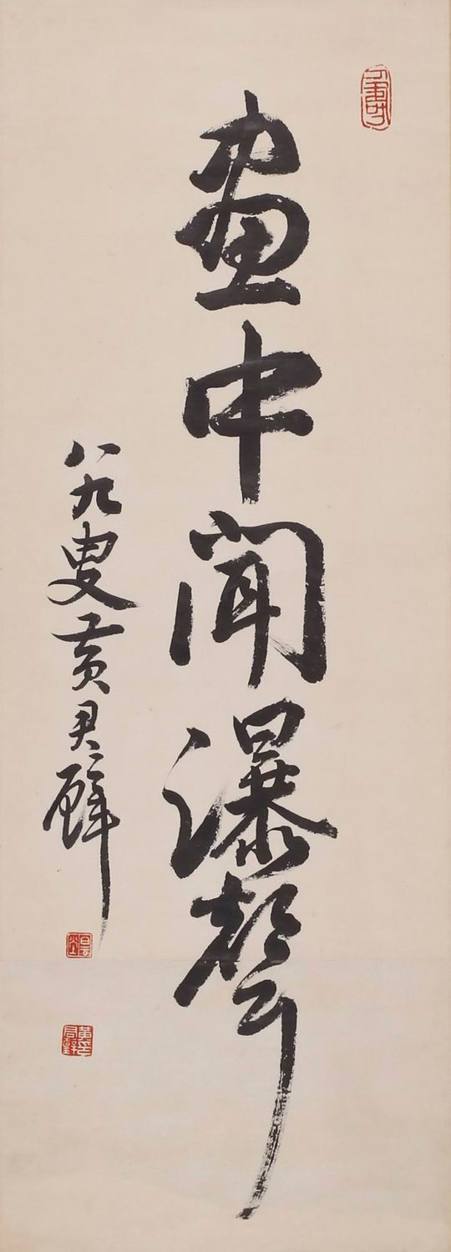 畫中聞瀑聲
八九叟黃君璧